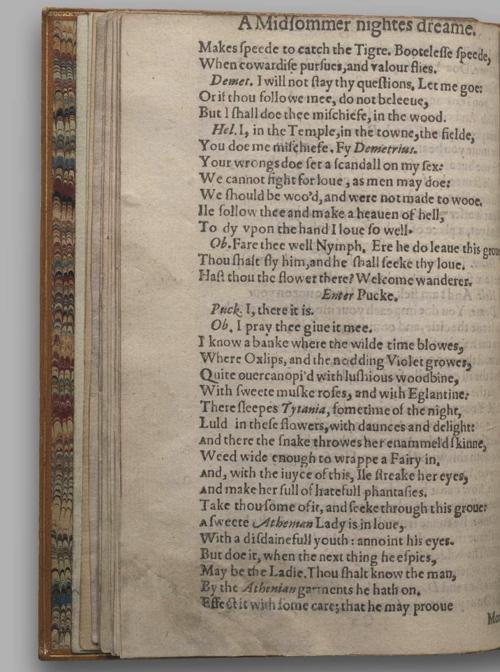 A Midſommer nightes dreame.
Makes ſpeede to catch the Tigre. Booteleſſe ſpeede,
When cowardiſe purſues, and valour flies.
Demet. I will not ſtay thy queſtions, Let me goe:
Or if thou followe mee, do not beleeue,
But I ſhall doe thee miſchiefe, in the wood.
Hel. I, in the Temple, in the towne, the fielde,
You doe me miſchiefe. Fy Demetrius.
Your wrongs doe ſet a ſcandall on my ſex:
We cannot fight for loue, as men may doe:
We ſhould be woo'd, and were not made to wooe.
Ile follow thee and make a heauen of hell,
To dy vpon the hand I loue ſo well.
Ob. Fare thee well Nymph. Ere he do leaue this grou
Thou ſhalt fly him, and he ſhall ſeeke thy loue.
Haſt thou the flower there? Welcome wanderer.
Enter Pucke.
Puck. I, there it is.
Ob. I pray thee giue it mee.
I know a banke where the wilde time blowes,
Where Oxlips, and the nodding Violet growes,
Quite ouercanopi'd with luſhious woodbine,
With ſweete muſke roſes, and with Eglantine:
There ſleepes Tytania, ſometime of the night,
Luld in theſe flowers, with daunces and delight:
And there the ſnake throwes her enammeld ſkinne,
Weed wide enough to wrappe a Fairy in.
And, with the iuyce of this, Ile ſtreake her eyes,
And make her full of hatefull phantaſies.
Take thou ſome of it, and ſeeke through this groue:
A ſweete Athenian Lady is in loue,
With a diſdainefull youth: annoint his eyes.
But doe it, when the next thing he eſpies,
May be the Ladie. Thou ſhalt know the man,
By the Athenian garments he hath on.
Effect it with ſome care; that he may prooue
Mor